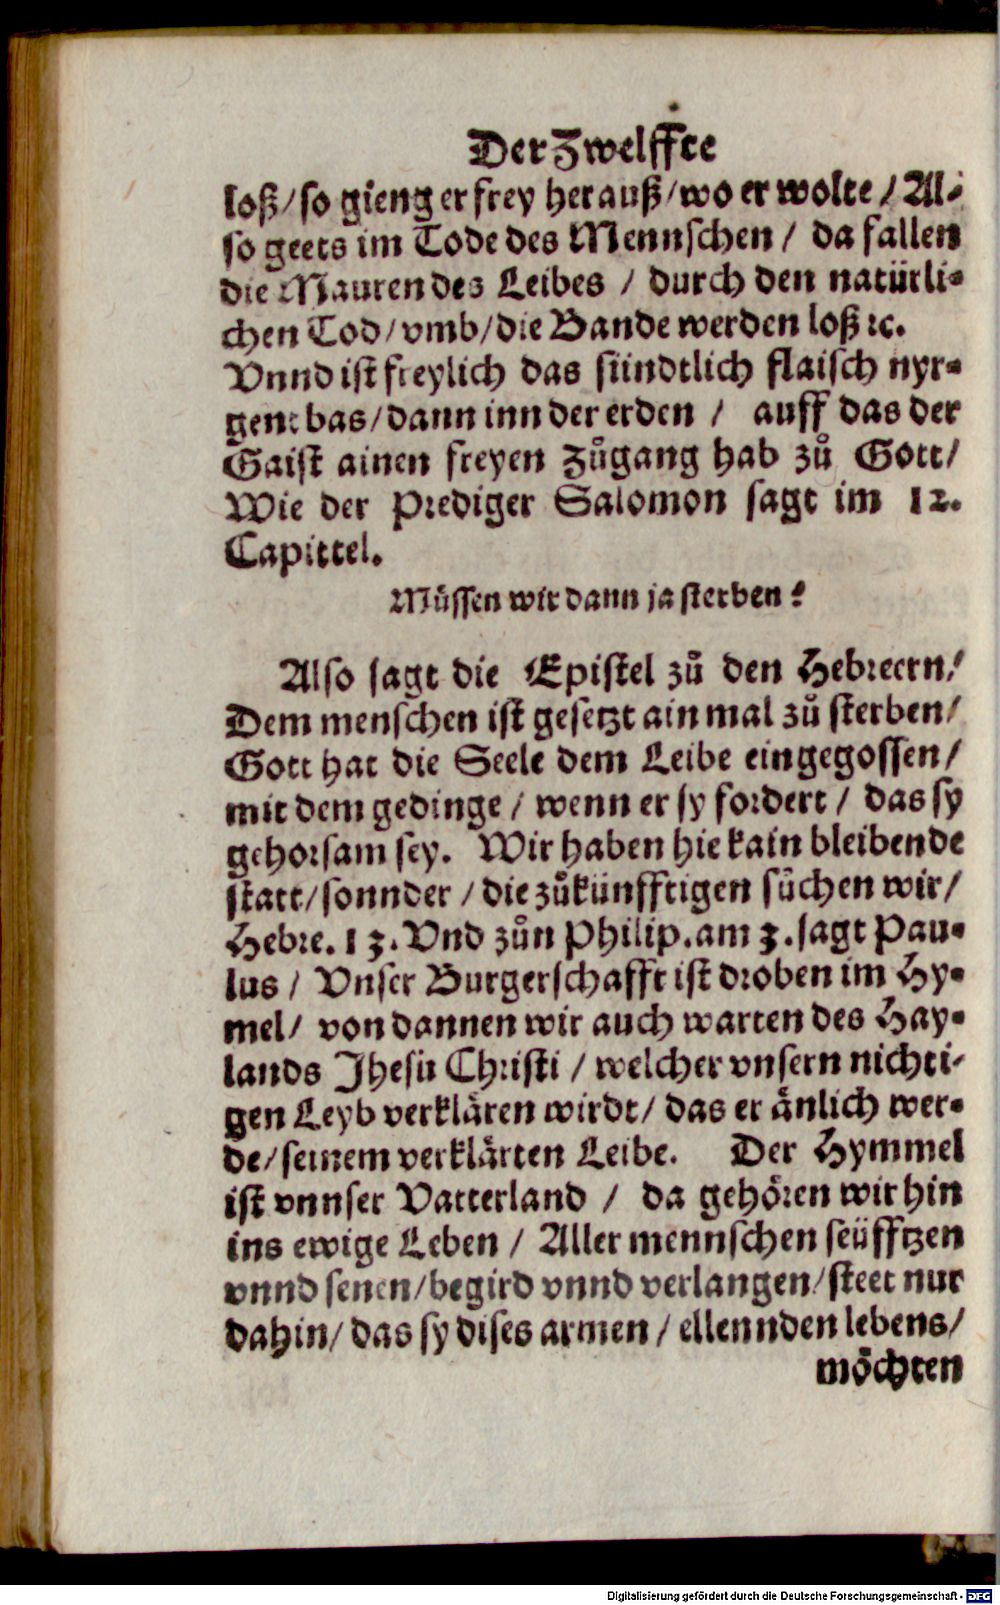 Der Zwelffte
loß/so gieng er frey herauß/wo er wolte/Al-
so geets im Tode des Mennschen/ da fallen
die Mauren des Leibes / durch den natürli-
chen Tod/vmb/die Bande werden loß ꝛc.
Vnnd ist freylich das sündtlich flaisch nyr-
gent bas/dann inn der erden / auff das der
Gaist ainen freyen zůgang hab zů Gott/
Wie der Prediger Salomon sagt im 12.
Capittel.
Müssen wir dann ja sterben?
Also sagt die Epistel zů den Hebreern/
Dem menschen ist gesetzt ain mal zů sterben/
Gott hat die Seele dem Leibe eingegossen/
mit dem gedinge / wenn er sy fordert / das sy
gehorsam sey. Wir haben hie kain bleibende
statt/sonnder / die zůkünfftigen sůchen wir/
Hebre. 13. Vnd zůn Philip. am 3. sagt Pau-
lus / Vnser Burgerschafft ist droben im Hy-
mel/ von dannen wir auch warten des Hay-
lands Jhesu Christi / welcher vnsern nichti-
gen Leyb verklären wirdt/ das er änlich wer-
de/seinem verklärten Leibe. Der Hymmel
ist vnnser Vatterland / da gehören wir hin
ins ewige Leben / Aller mennschen seüfftzen
vnnd senen/begird vnnd verlangen/steet nur
dahin/ das sy dises armen / ellennden lebens/
möchten
Digitalisierung gefördert durch die Deutsche Forschungsgemeinschaft - DFG